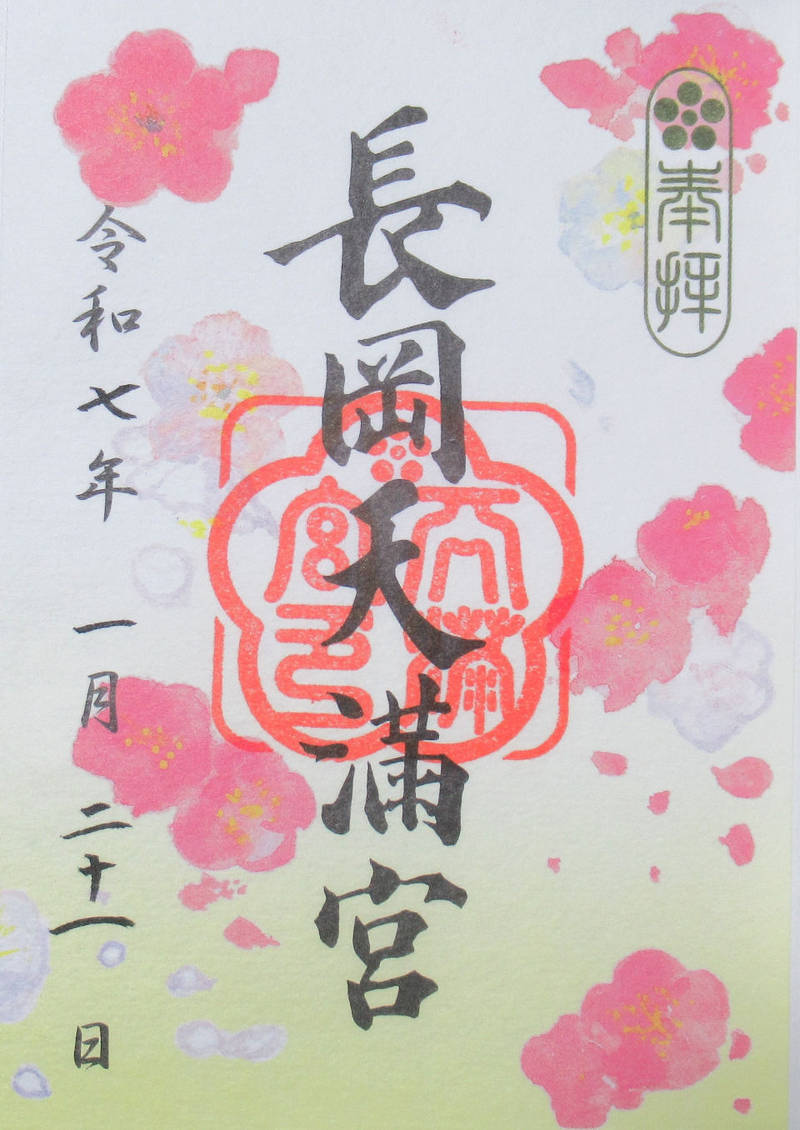 奉拝
長岡天満宮
令和七年 一月 二十一日